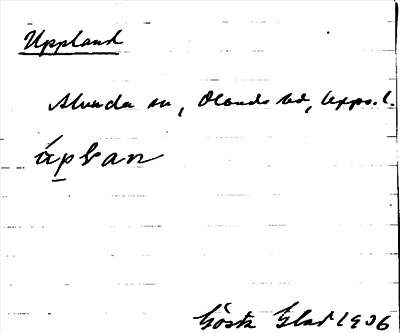 Uppland
Alunda sn, Olands hd, Upps. l.
åpkan
Gösta Glad 1906